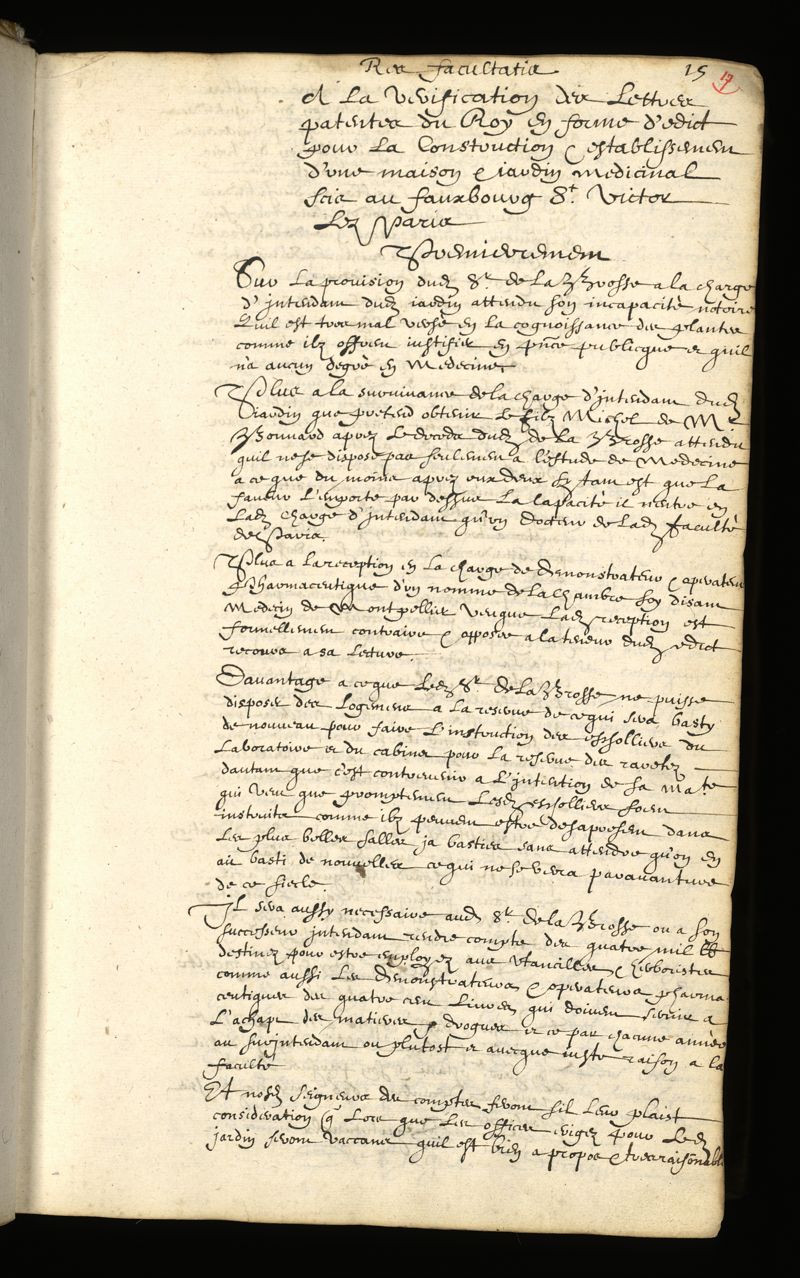 Res facultatis 15 17
A La Verification des Lettres
patentes du Roy en forme d'edict
pour La Construction & establissement
d'vne maison & iardin medicinal
scis au fauxbourg St. Victor
Lez Paris
Premierement
Sur La prouision dud. Sr. de La Brosse a la charge
d'intendant dud. iardin attendu son incapacité notoire
Quil est tres mal versé en la cognoissance des plantes
comme ilz offrent iustifier en pnce publicque et quil
n'a aucun degré en Medecine.
Plus a la suruiuance de la charge d'intendant dud.
iardin que pretend obtenir Le filz Michel de Mr.
Bonuard apres Le deceds dud. de La Brosse attendu
quil ne se dispose pas seulement a l'estude de Medecine
a ce que du moins apres eux deux sy tant est que La
faueur L'emporte par dessus La capacité il n'entre en
Lad. charge d'intendant qu'vn docteur de Lad. faculté
de Paris.
Plus a la reception en La charge de demonstrateur & operateur
Pharmaceutique d'vn nommé de La Chambre soy disant
Medecin de Montpellier veu que Lad. reception est
formellement contraire & opposée a la teneur dud. edict
recours a sa Lecture.
Dauantage a ce que Led. Sr. de La Brosse ne puisse
disposer des Logemens a la reserue de ce qui sera basty
de nouueau pour faire L'instruction des escolliers du
Laboratoire et du cabinet pour La reserue des raretez
dautant que c'est contreuenir a L'intention de sa Mate.
qui veut que promptement Lesd. escolliers soient
instruits comme ilz peuuent estre des a present dans
Les plus belles salles ja basties sans attendre qu'on en
ait basti de nouuelles ce qui ne se verra parauanture
de ce siecle.
Il sera aussy necessaire aud. Sr. de La Brosse ou a son
successeur intendant rendre compte des quatre mil ℔
destinez pour estre employez aux vtancilles & herboristes
comme aussi Les demonstrateurs & operateurs pharma
ceutiques des quatre cent Liures qui doiuent seruir a
L'achapt des matieres & drogues et ce par chacune année
au surintendant ou plutost et auecque iuste raison a la
faculté
Et nosd. Seigneurs des comptes feront sil Leur plaist
consideration q Lors que Les offices erigez pour Led.
jardin seront vaccans quil est bien a propos & tres raisonnable